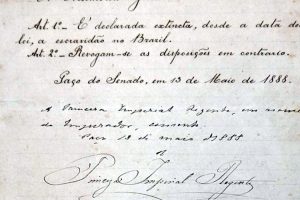 Art. 1º_ É declarada extincta, desde a data de
lei, a escravidão no Brazil.
Art. 2º_ Revogam-se as disposições em contrario.
Paço do Senado, em 13 de Maio de 1888.
A Princesa Imperial Regente, em nome
do Imperador, consente.
Paço 13 de maio de 1888
Princeza Imperial Regente